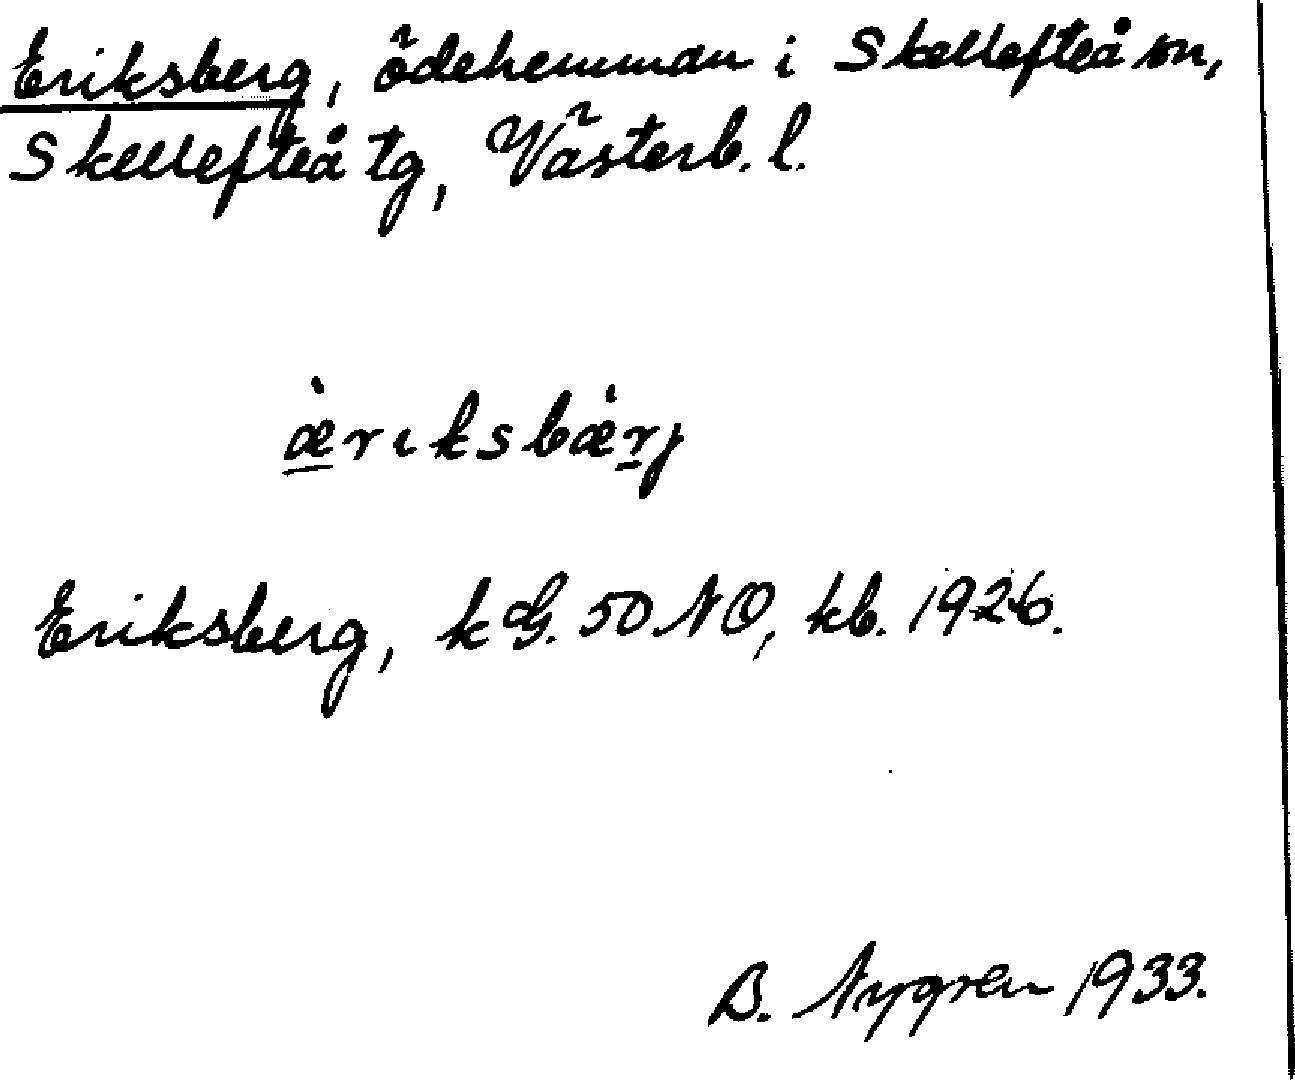 Eriksberg, ödehemman i Skellefteå sn,
Skellefteå tg, Västerb. l.
æ̀riksbæ̀rj
Eriksberg, k G. 50 NO, kb. 1926.
B. Nygren 1933.